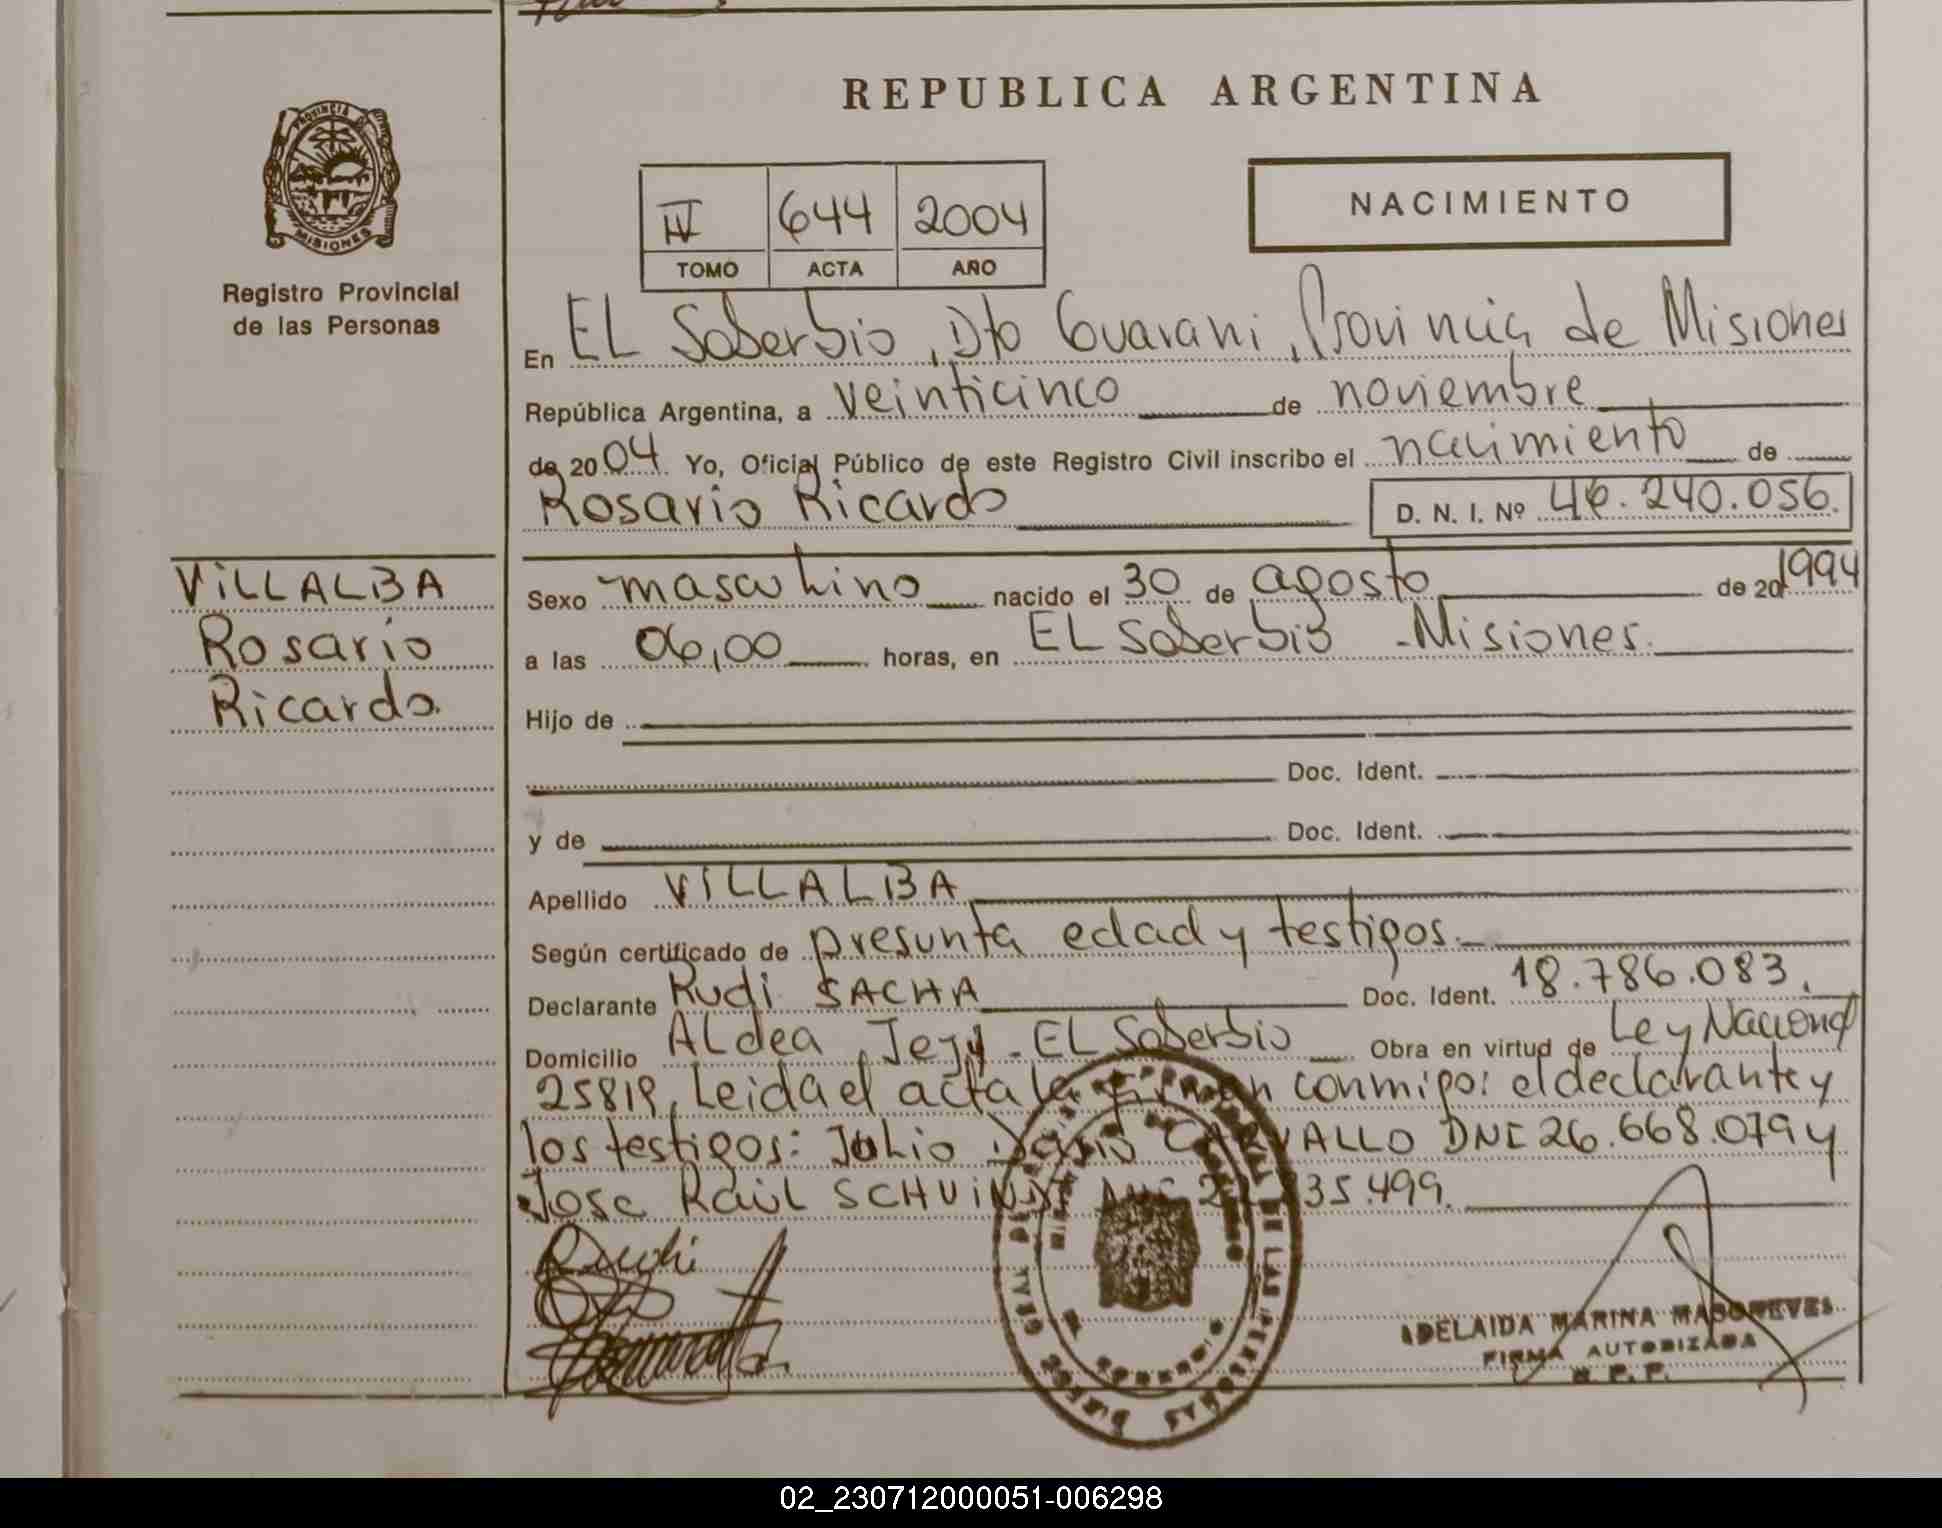 REPUBLICA ARGENTINA
PROVINCIA DE
MISIONES
Registro Provincial
de las Personas
IV 644 2004
TOMO ACTA AÑO
NACIMIENTO
En EL Soberbio, Dto Guarani, Provincia de Misiones
República Argentina, a veinticinco de noviembre
de 2004. Yo, Oficial Público de este Registro Civil inscribo el nacimiento de
Rosario Ricardo D. N. I. Nº 46.240.056.
VILLALBA
Rosario
Ricardo.
Sexo masculino nacido el 30 de agosto de 20 1994
a las 06,00 horas, en EL Soberbio - Misiones.
Hijo de
Doc. Ident.
y de Doc. Ident.
Apellido VILLALBA
Según certificado de presunta edad y testigos.
Declarante Rudi SACHA Doc. Ident. 18.786.083.
Domicilio ALdea Jejy - EL Soberbio Obra en virtud de Ley Nacional
25819, Leida el acta la firman conmigo: el declarante y
los testigos: Julio Dario CARVALLO DNI 26.668.079 y
Jose Raul SCHUINDT DNI 35.499.
Rudi
ADELAIDA MARINA
FIRMA AUTORIZADA
R. P. P.
02_230712000051-006298